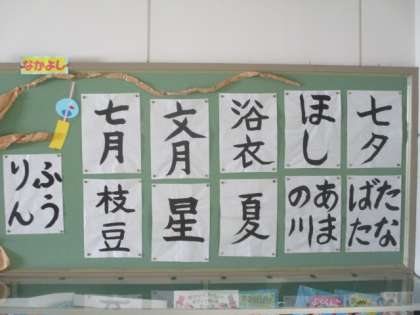 なかよし
七夕
ほし
浴衣
文月
七月
たな
ばた
あま
の川
夏
星
枝豆
ふう
りん